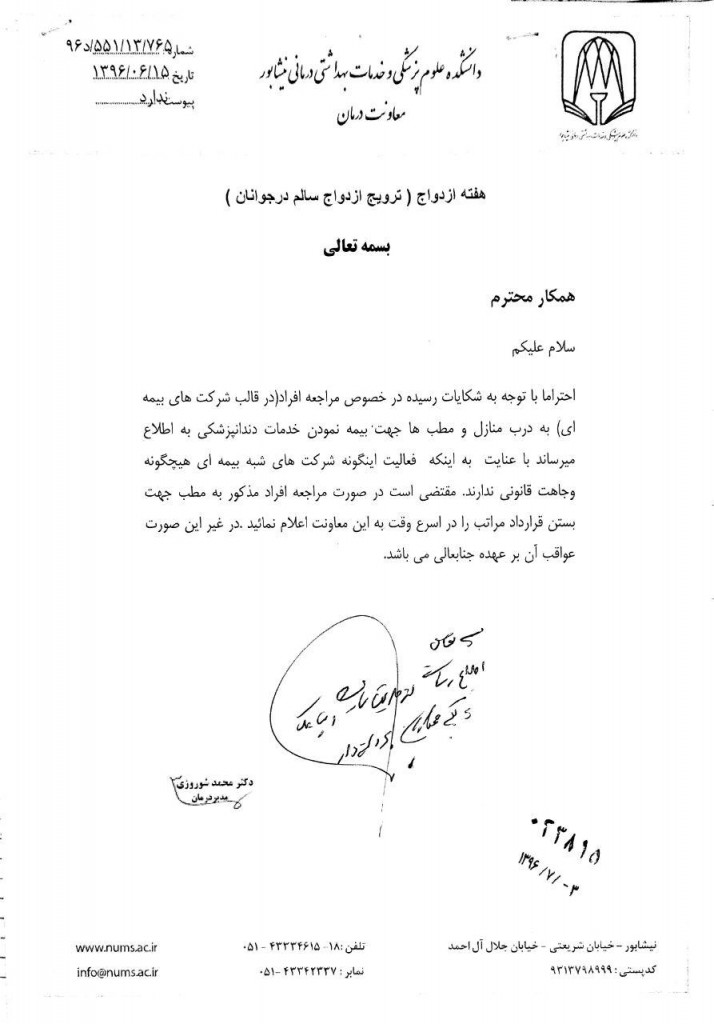 شماره ۹۶د/۵۵۱/۱۳/۷۶۵
تاریخ ۱۳۹۶/۰۶/۱۵
پیوست ندارد
دانشکده علوم پزشکی و خدمات بهداشتی درمانی نیشابور
معاونت درمان
هفته ازدواج ( ترویج ازدواج سالم درجوانان )
بسمه تعالی
همکار محترم
سلام علیکم
احتراما با توجه به شکایات رسیده در خصوص مراجعه افراد(در قالب شرکت های بیمه
ای) به درب منازل و مطب ها جهت بیمه نمودن خدمات دندانپزشکی به اطلاع
میرساند با عنایت به اینکه فعالیت اینگونه شرکت های شبه بیمه ای هیچگونه
وجاهت قانونی ندارند. مقتضی است در صورت مراجعه افراد مذکور به مطب جهت
بستن قرارداد مراتب را در اسرع وقت به این معاونت اعلام نمائید .در غیر این صورت
عواقب آن بر عهده جنابعالی می باشد.
دکتر محمد شوروزی
مدیر درمان
۰۲۳۸۹۵
۱۳۹۶/۷/۰۳
نیشابور – خیابان شریعتی - خیابان جلال آل احمد
کدپستی : ۹۳۱۳۷۹۸۹۹۹
تلفن :۱۸- ۴۳۳۳۴۶۱۵ - ۰۵۱
نمابر : ۴۳۳۴۲۳۳۷ - ۰۵۱
www.nums.ac.ir
info@nums.ac.ir